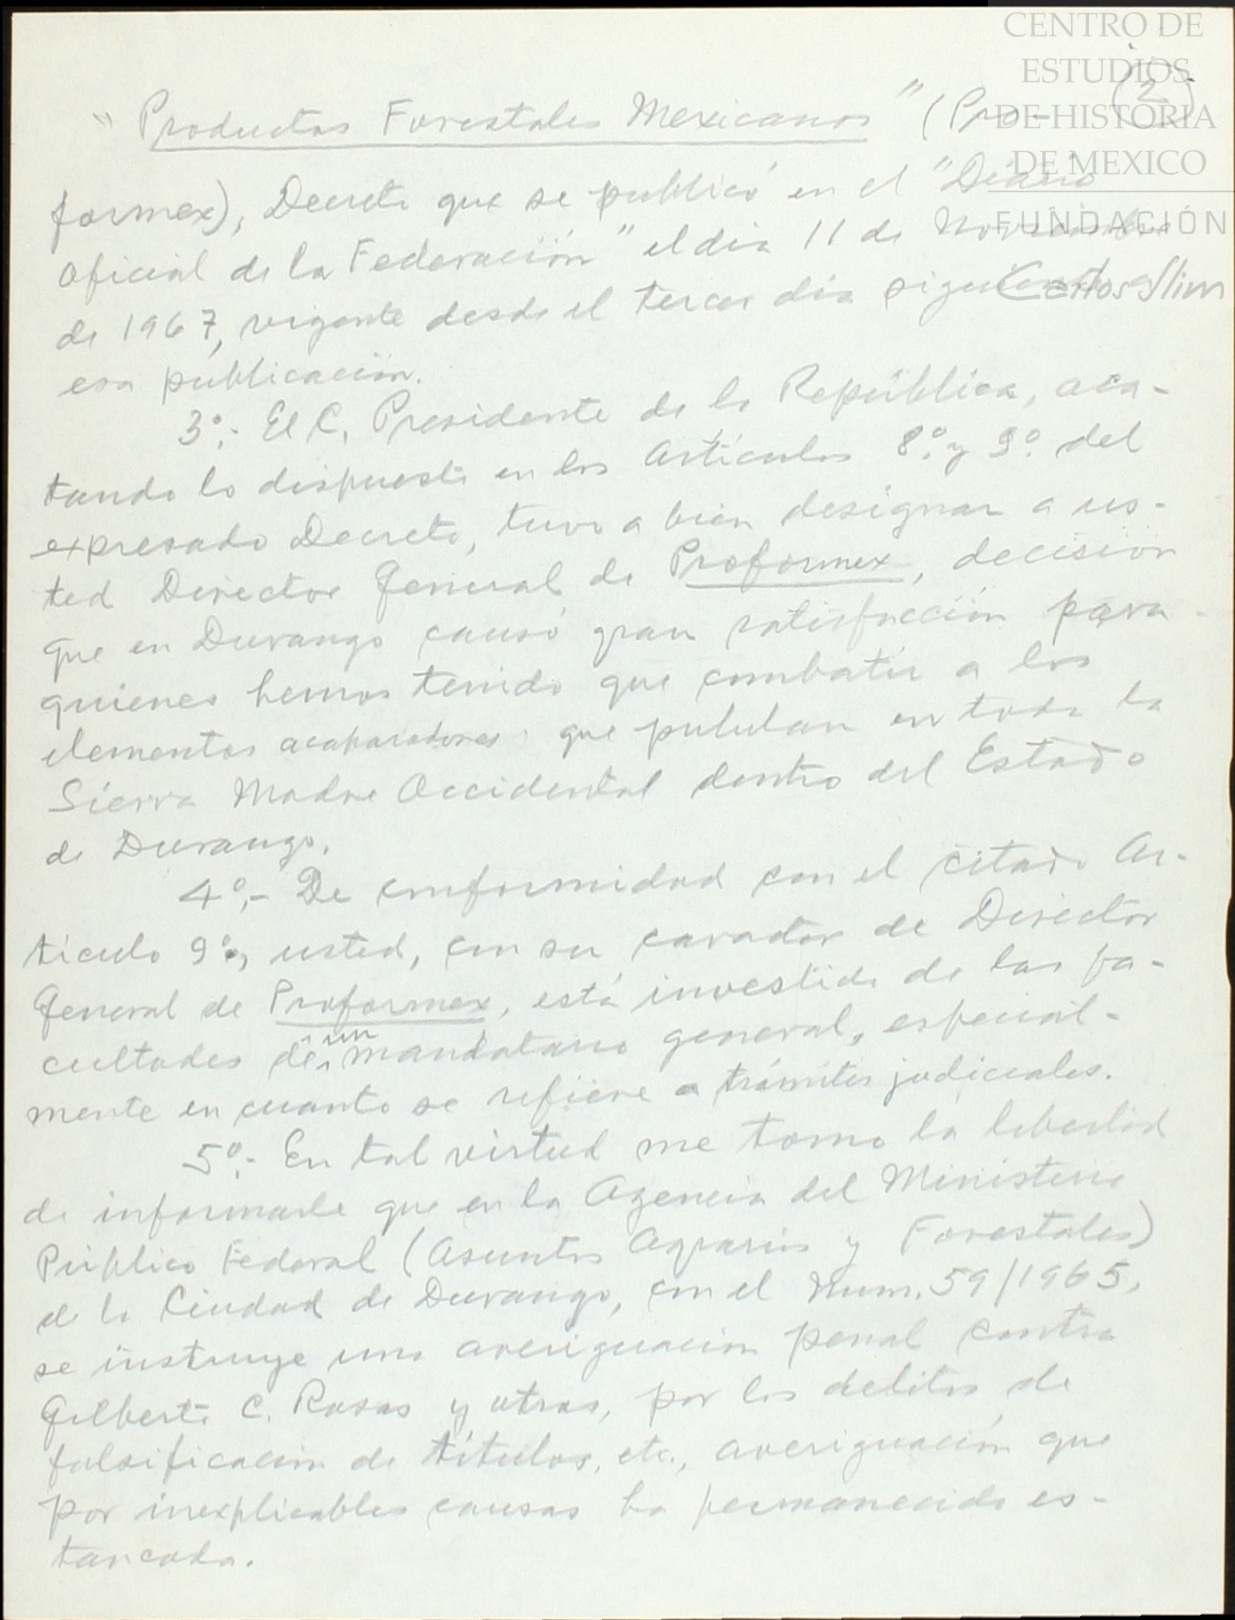 CENTRO DE
ESTUDIOS
DE HISTORIA
DE MEXICO
FUNDACIÓN
Carlos Slim
(2)
"Productos Forestales Mexicanos" (Pro-
formex), Decreto que se publicó en el "Diario
Oficial de la Federación" el día 11 de Noviembre
de 1967, vigente desde el tercer día siguiente a
esa publicación.
3º.- El C. Presidente de la República, aca-
tando lo dispuesto en los Artículos 8º. y 9º. del
expresado Decreto, tuvo a bien designar a us-
ted Director General de Proformex, decisión
que en Durango causó gran satisfacción para
quienes hemos tenido que combatir a los
elementos acaparadores que pululan en toda la
Sierra Madre Occidental dentro del Estado
de Durango.
4º.- De conformidad con el citado Ar-
tículo 9º, usted, con su caracter de Director
General de Proformex, está investido de las fa-
cultades de un mandatario general, especial-
mente en cuanto se refiere a trámites judiciales.
5º.- En tal virtud me tomo la libertad
de informarle que en la Agencia del Ministerio
Público Federal (Asuntos Agrarios y Forestales)
de la Ciudad de Durango, con el Num. 59/1965,
se instruye una averiguación penal contra
Gilberto C. Rosas y otros, por los delitos de
falsificación de títulos, etc., averiguación que
por inexplicables causas ha permanecido es-
tancada.